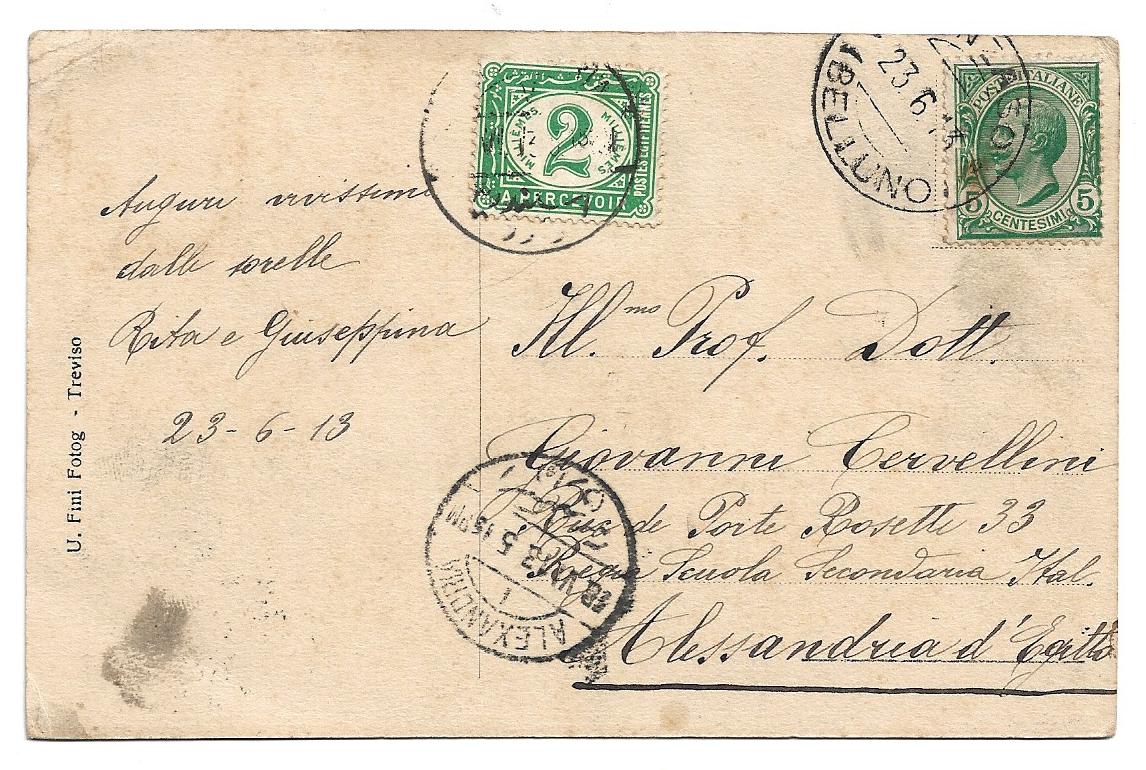 Auguri vivissimi
dalle sorelle
Rita e Giuseppina
23-6-13
U. Fini Fotog - Treviso
2
MILLIEMES
MILLIEMES
POSTES EGYPTIENNES
A PERCEVOIR
23.6.13
(BELLUNO)
POSTE ITALIANE
5 5
CENTESIMI
Ill.mo Prof. Dott.
Giovanni Cervellini
Rue de Porte Rosette 33
Regia Scuola Secondaria Ital.
Alessandria d'Egitto
ALEXANDRIA
5 15 PM